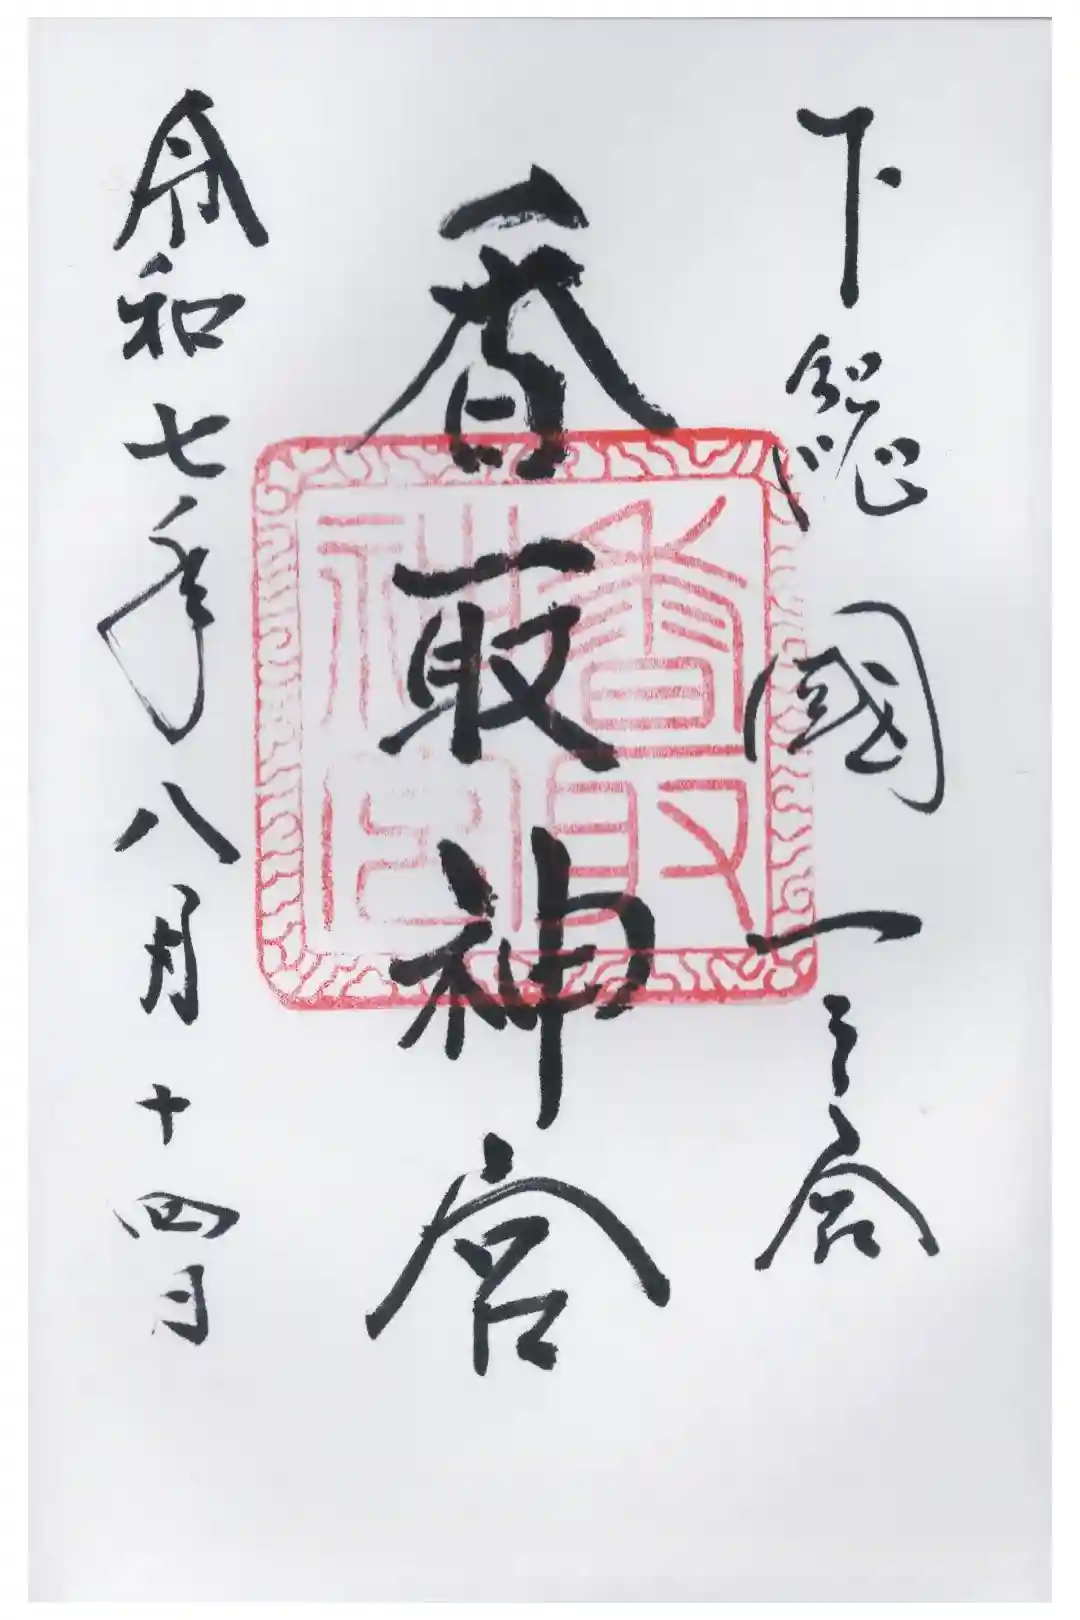 下総國一之宮
香取神宮
香取
神宮
令和七年八月十四日